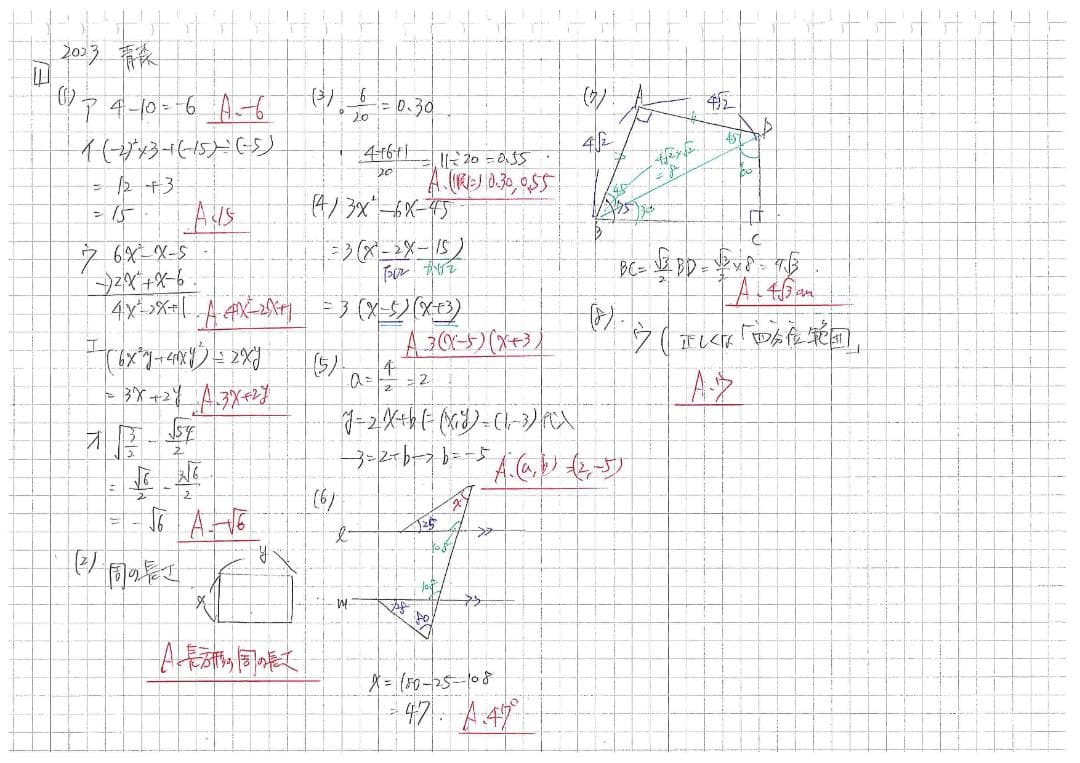 2023 青森
1
(1) ア 4-10=-6 A.-6
イ (-2)²×3+(-15)÷(-5)
= 12 +3
= 15. A.15
ウ 6x²-x-5
-)2x²+x-6
4x²-2x+1 A.4x²-2x+1
エ (6x²y+4xy²)÷2xy
= 3x+2y A.3x+2y
オ √3/2 - √54/2
= √6/2 - 3√6/2
= -√6 A.-√6
(2). 周の長さ
y
x
A.長方形の周の長さ
(3). 6/20 = 0.30
4+6+1/20 = 11÷20=0.55
A.(順に) 0.30,0.55
(4) 3x²-6x-45
=3(x²-2x-15)
たして かけて
=3(x-5)(x+3)
A.3(x-5)(x+3)
(5).
a=4/2=2
y=2x+bに(x,y)=(1,-3)代入
-3=2+b→b=-5
A.(a,b)=(2,-5)
(6)
x
25
ℓ
108
108
m
28
80
x=180-25-108
=47. A.47°
(7).
A
4√2
D
4√2
45
4√2×√2
=8
60
45
75
30
B
C
BC=√3/2 BD=√3/2×8=4√3.
A.4√3cm
(8).
ウ (正しくは「四分位範囲」
A.ウ